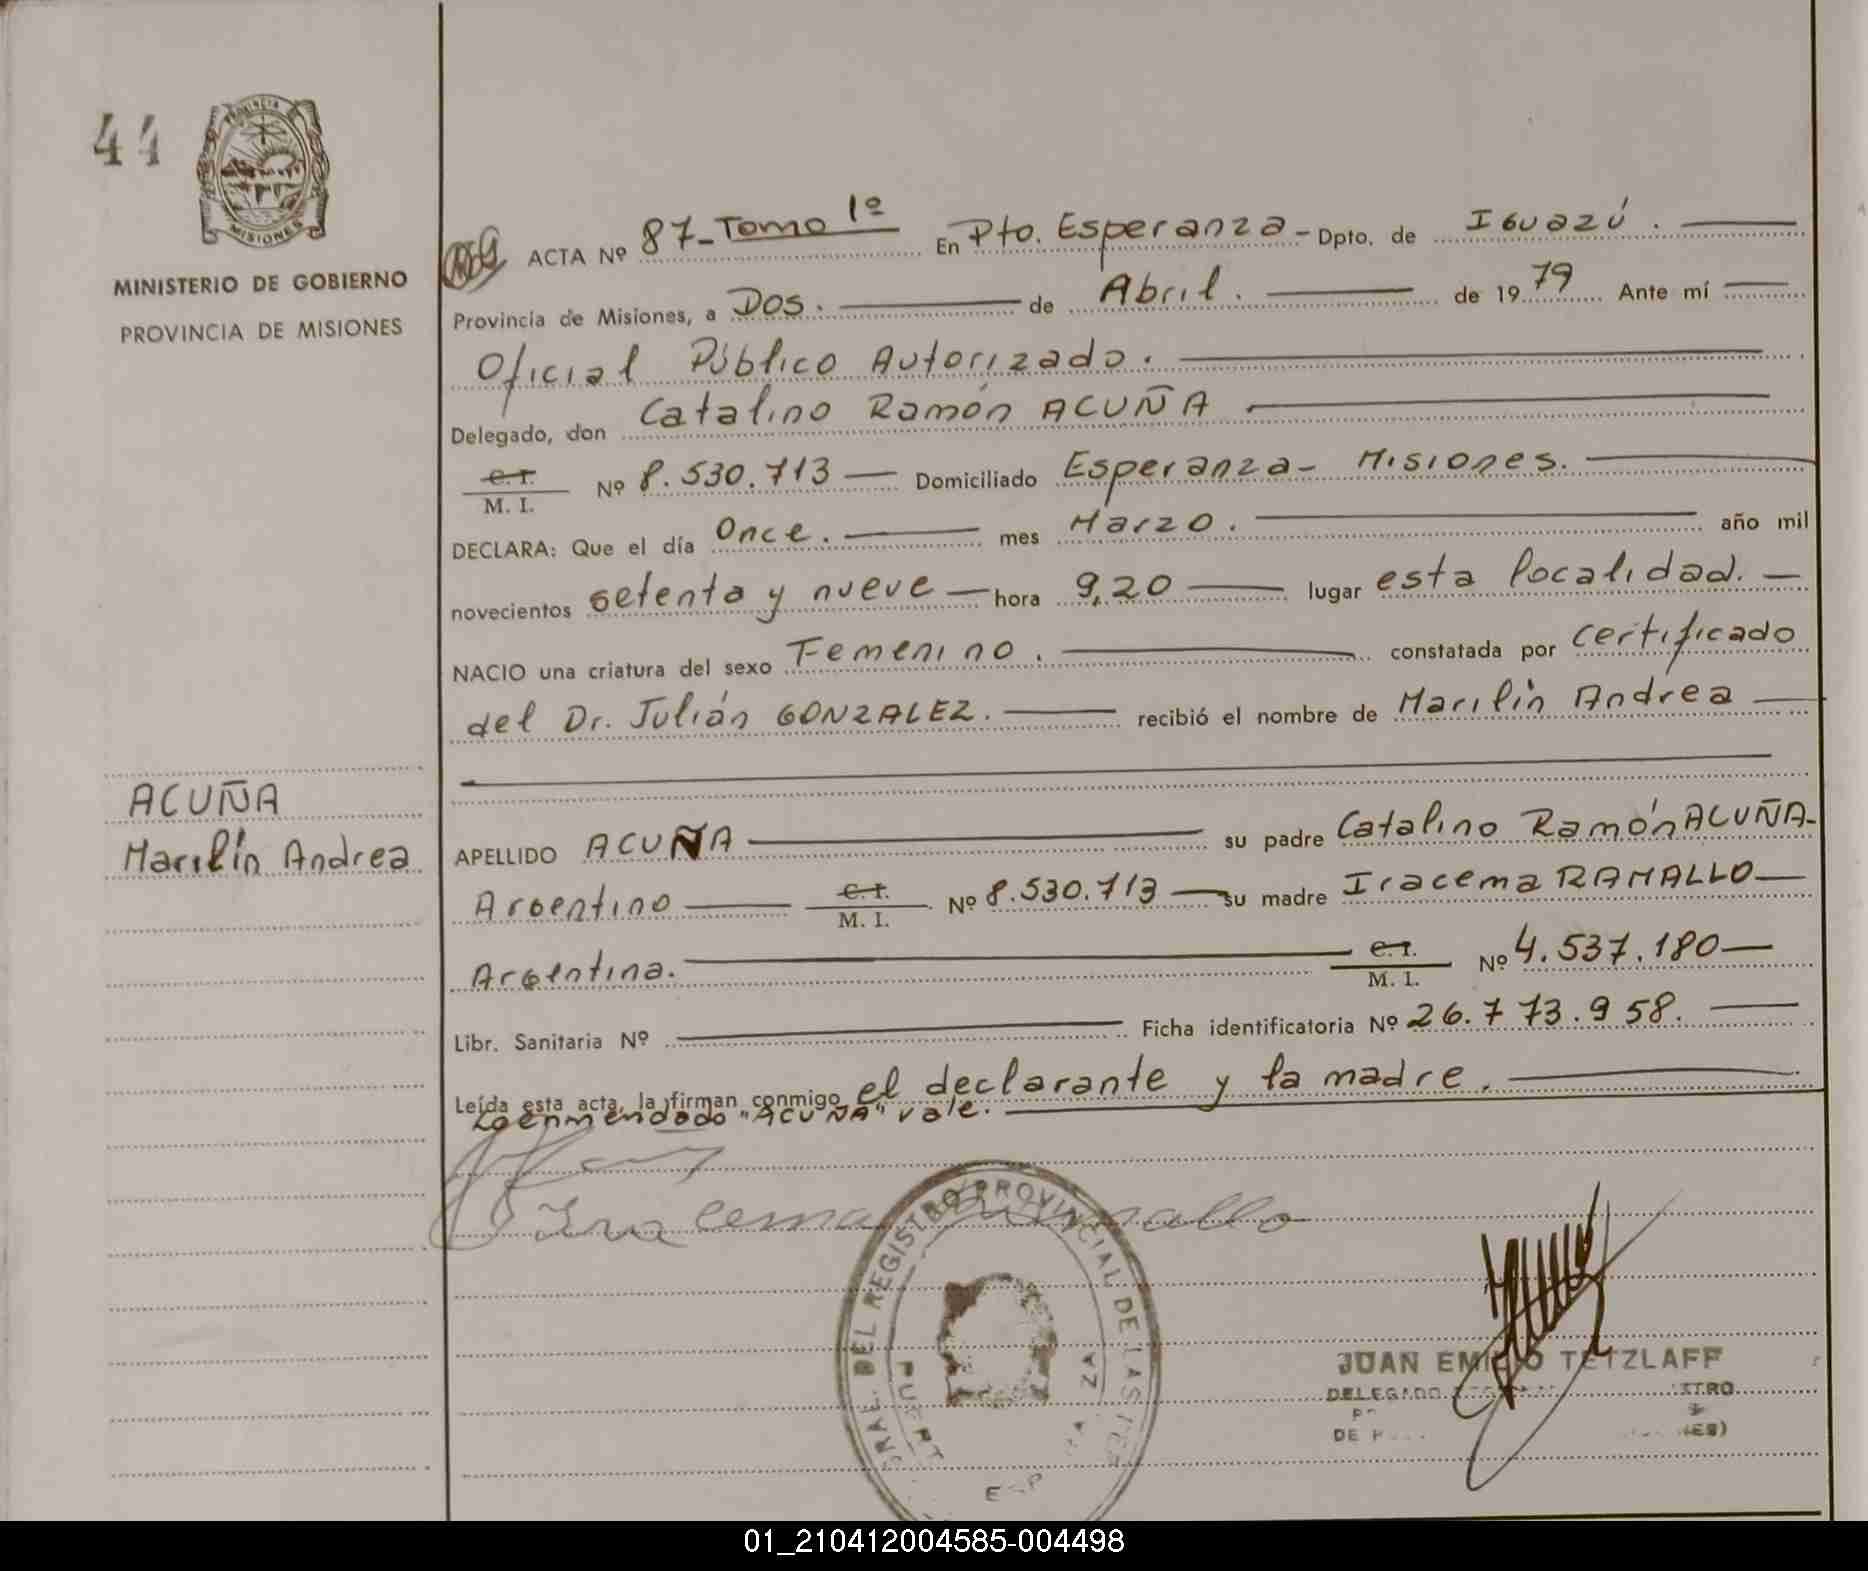 44
PROVINCIA
MISIONES
MINISTERIO DE GOBIERNO
PROVINCIA DE MISIONES
ACUÑA
Marilín Andrea
ACTA Nº 87-Tomo 1º En Pto. Esperanza - Dpto. de Iguazú.
Provincia de Misiones, a Dos. de Abril. de 1979 Ante mí
Oficial Público Autorizado.
Delegado, don Catalino Ramón ACUÑA
C. I.
M. I. Nº 8.530.713 Domiciliado Esperanza - Misiones.
DECLARA: Que el día Once. mes Marzo. año mil
novecientos setenta y nueve hora 9,20 lugar esta localidad.
NACIO una criatura del sexo Femenino. constatada por certificado
del Dr. Julián GONZALEZ. recibió el nombre de Marilín Andrea
APELLIDO ACUÑA su padre Catalino Ramón ACUÑA-
Argentino C. I. M. I. Nº 8.530.713 su madre Iracema RAMALLO
Argentina. C. I. M. I. Nº 4.537.180
Libr. Sanitaria Nº Ficha identificatoria Nº 26.773.958.
Leída esta acta, la firman conmigo el declarante y la madre.
Lo enmendado "ACUÑA" vale.
Iracema Ramallo
GRAL. DEL REGISTRO PROVINCIAL DE LAS PER
JUAN EMILIO TETZLAFF
DELEGADO
01_210412004585-004498